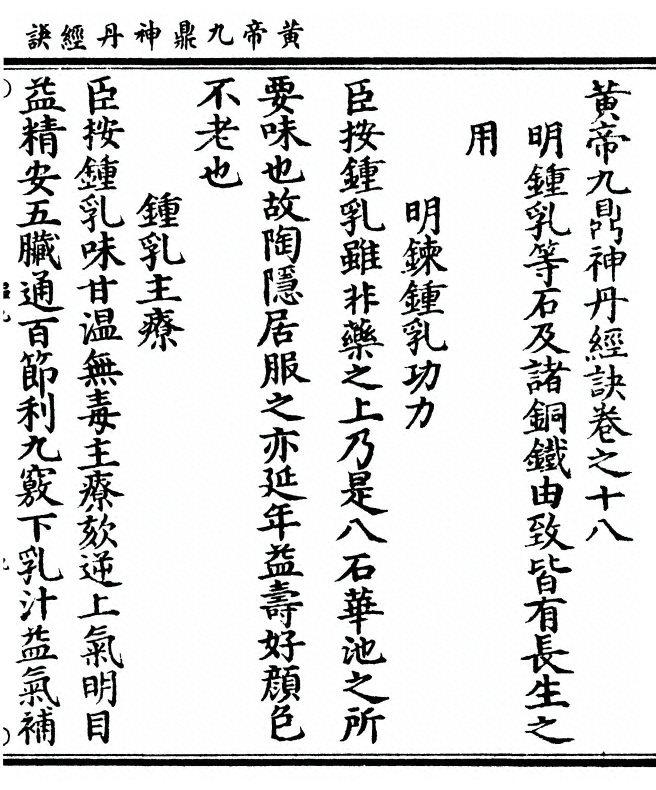 黃帝九鼎神丹經訣
黃帝九鼎神丹經訣卷之十八
明鍾乳等石及諸銅鐵由致皆有長生之
用
明鍊鍾乳功力
臣按鍾乳雖非藥之上乃是八石華池之所
要味也故陶隱居服之亦延年益壽好顏色
不老也
鍾乳主療
臣按鍾乳味甘溫無毒主療欬逆上氣明目
益精安五臟通百節利九竅下乳汁益氣補